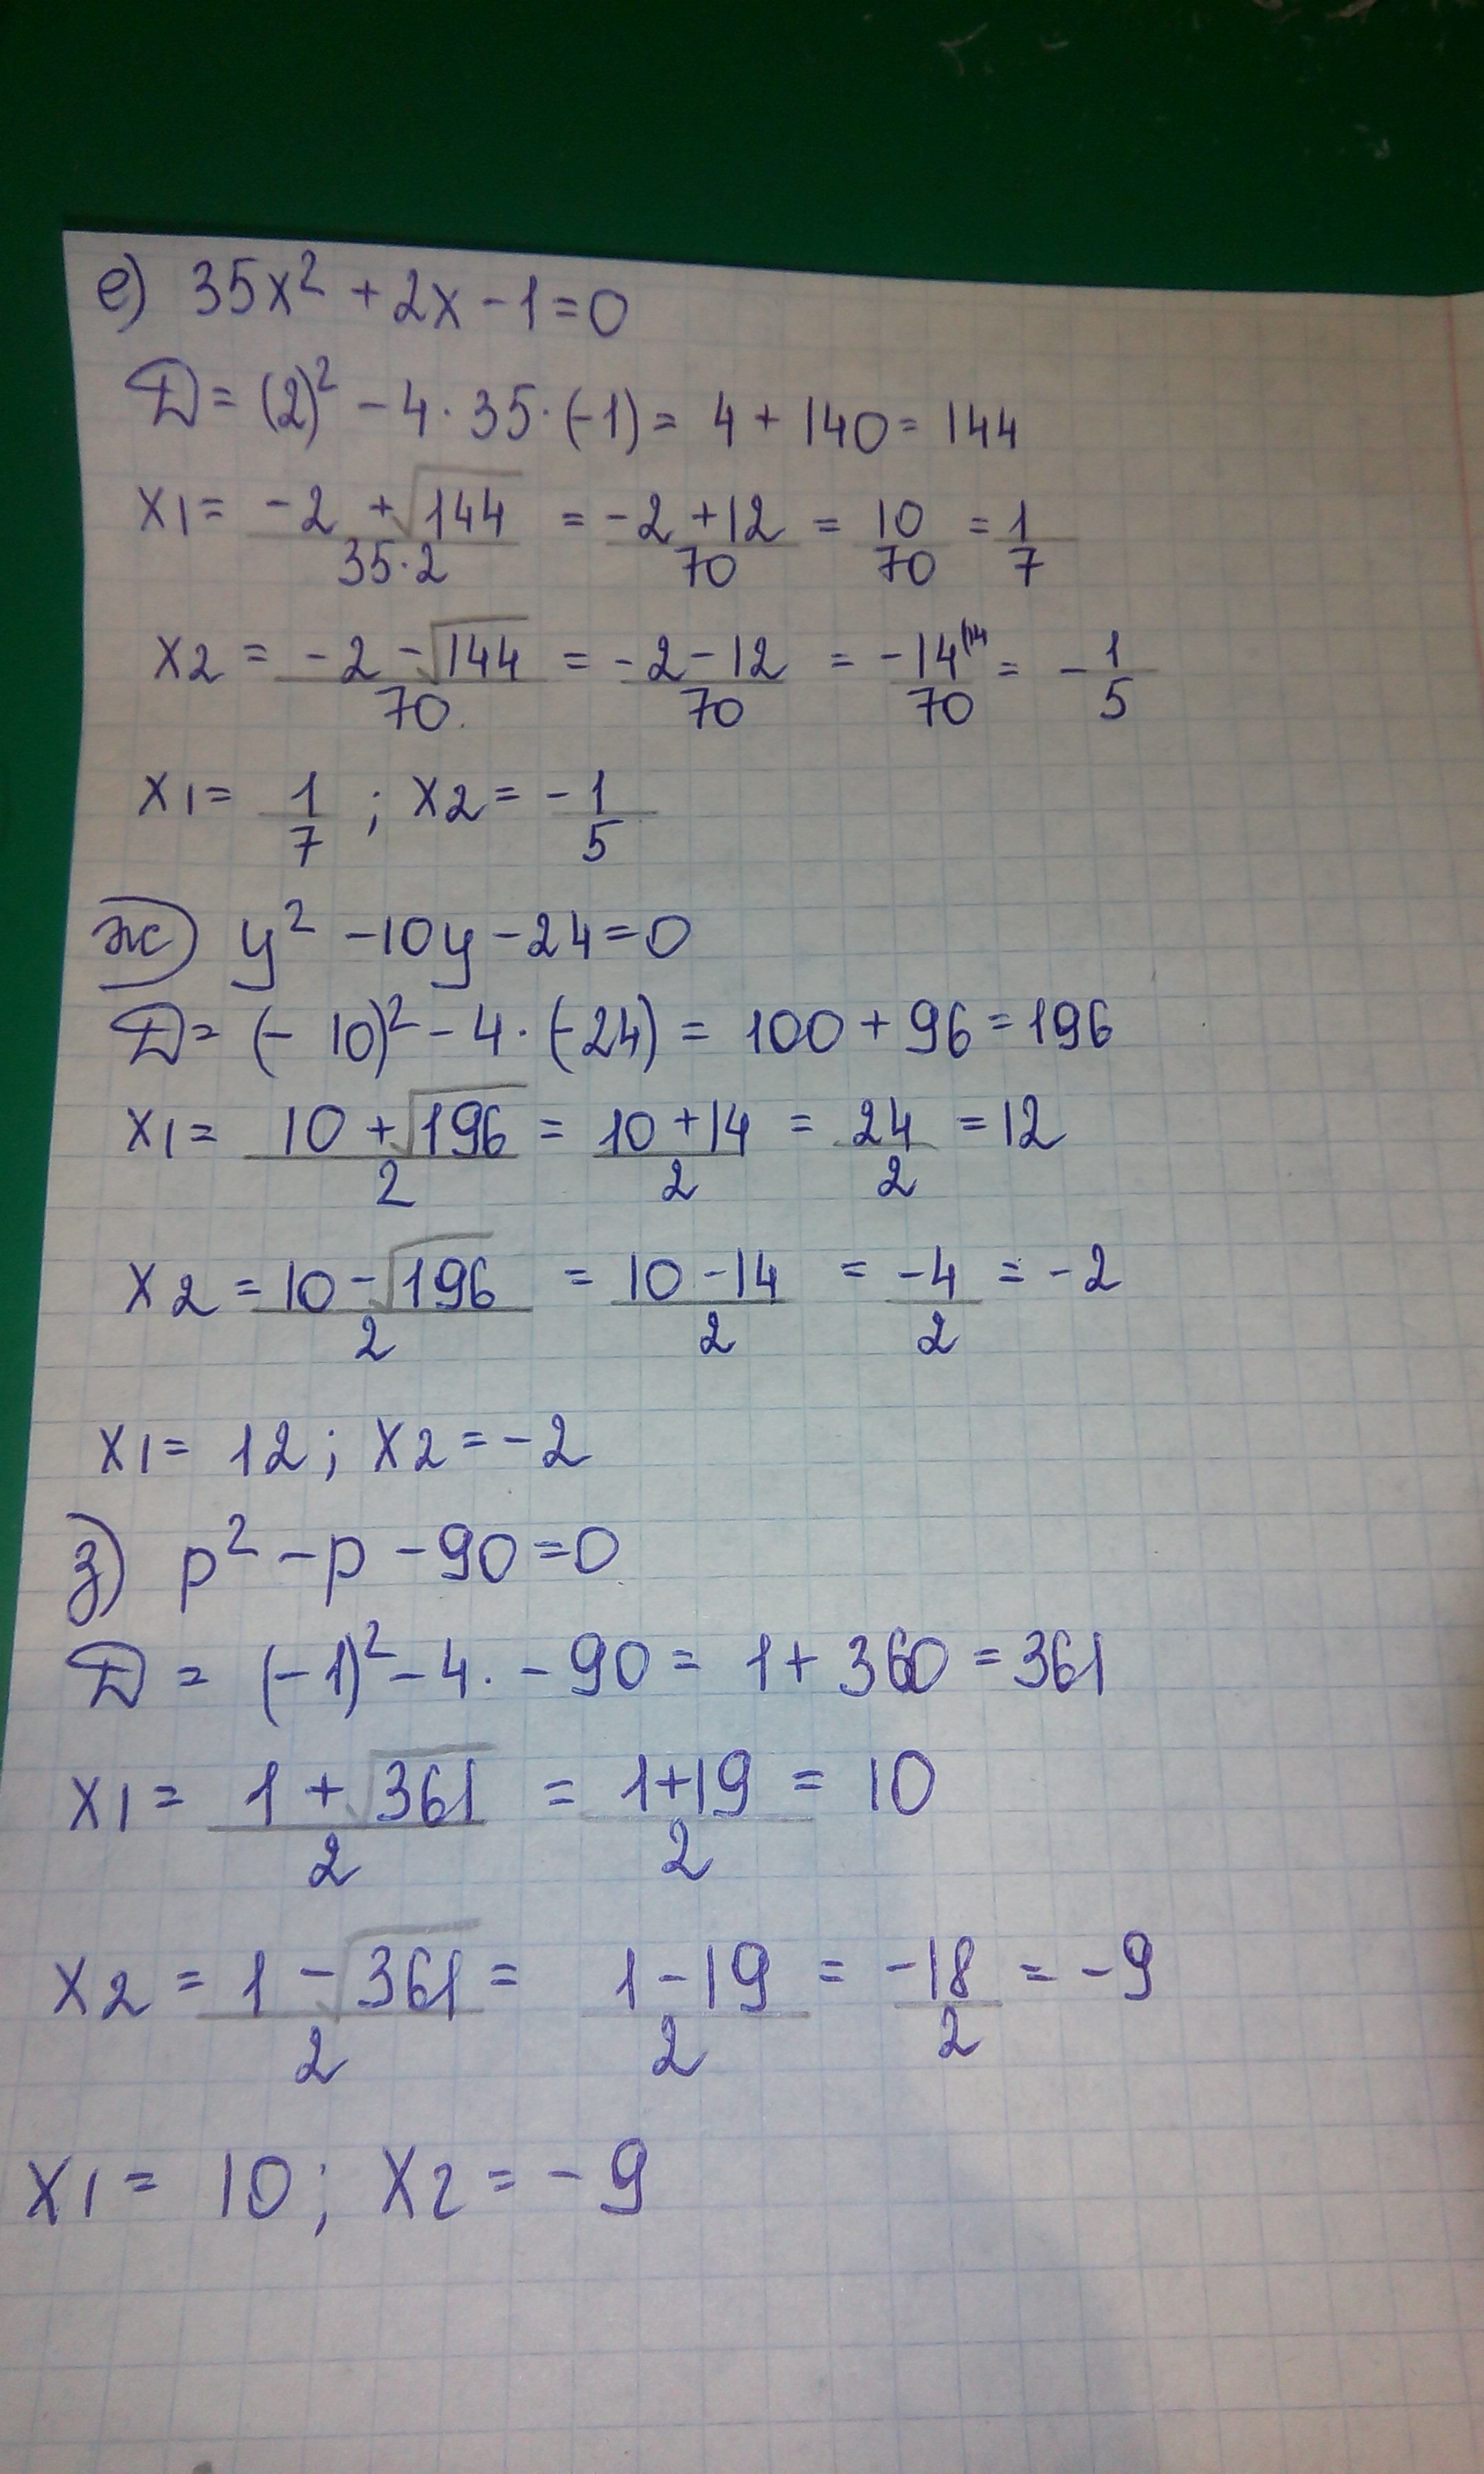 е) 35x² + 2x - 1 = 0
D = (2)² - 4 · 35 · (-1) = 4 + 140 = 144
x1 = (-2 + √144)/(35·2) = (-2 + 12)/70 = 10/70 = 1/7
x2 = (-2 - √144)/70 = (-2 - 12)/70 = -14/70 (14 = -1/5
x1 = 1/7 ; x2 = -1/5
ж) y² - 10y - 24 = 0
D = (-10)² - 4 · (-24) = 100 + 96 = 196
x1 = (10 + √196)/2 = (10 + 14)/2 = 24/2 = 12
x2 = (10 - √196)/2 = (10 - 14)/2 = -4/2 = -2
x1 = 12 ; x2 = -2
з) p² - p - 90 = 0
D = (-1)² - 4 · - 90 = 1 + 360 = 361
x1 = (1 + √361)/2 = (1 + 19)/2 = 10
x2 = (1 - √361)/2 = (1 - 19)/2 = -18/2 = -9
x1 = 10 ; x2 = -9